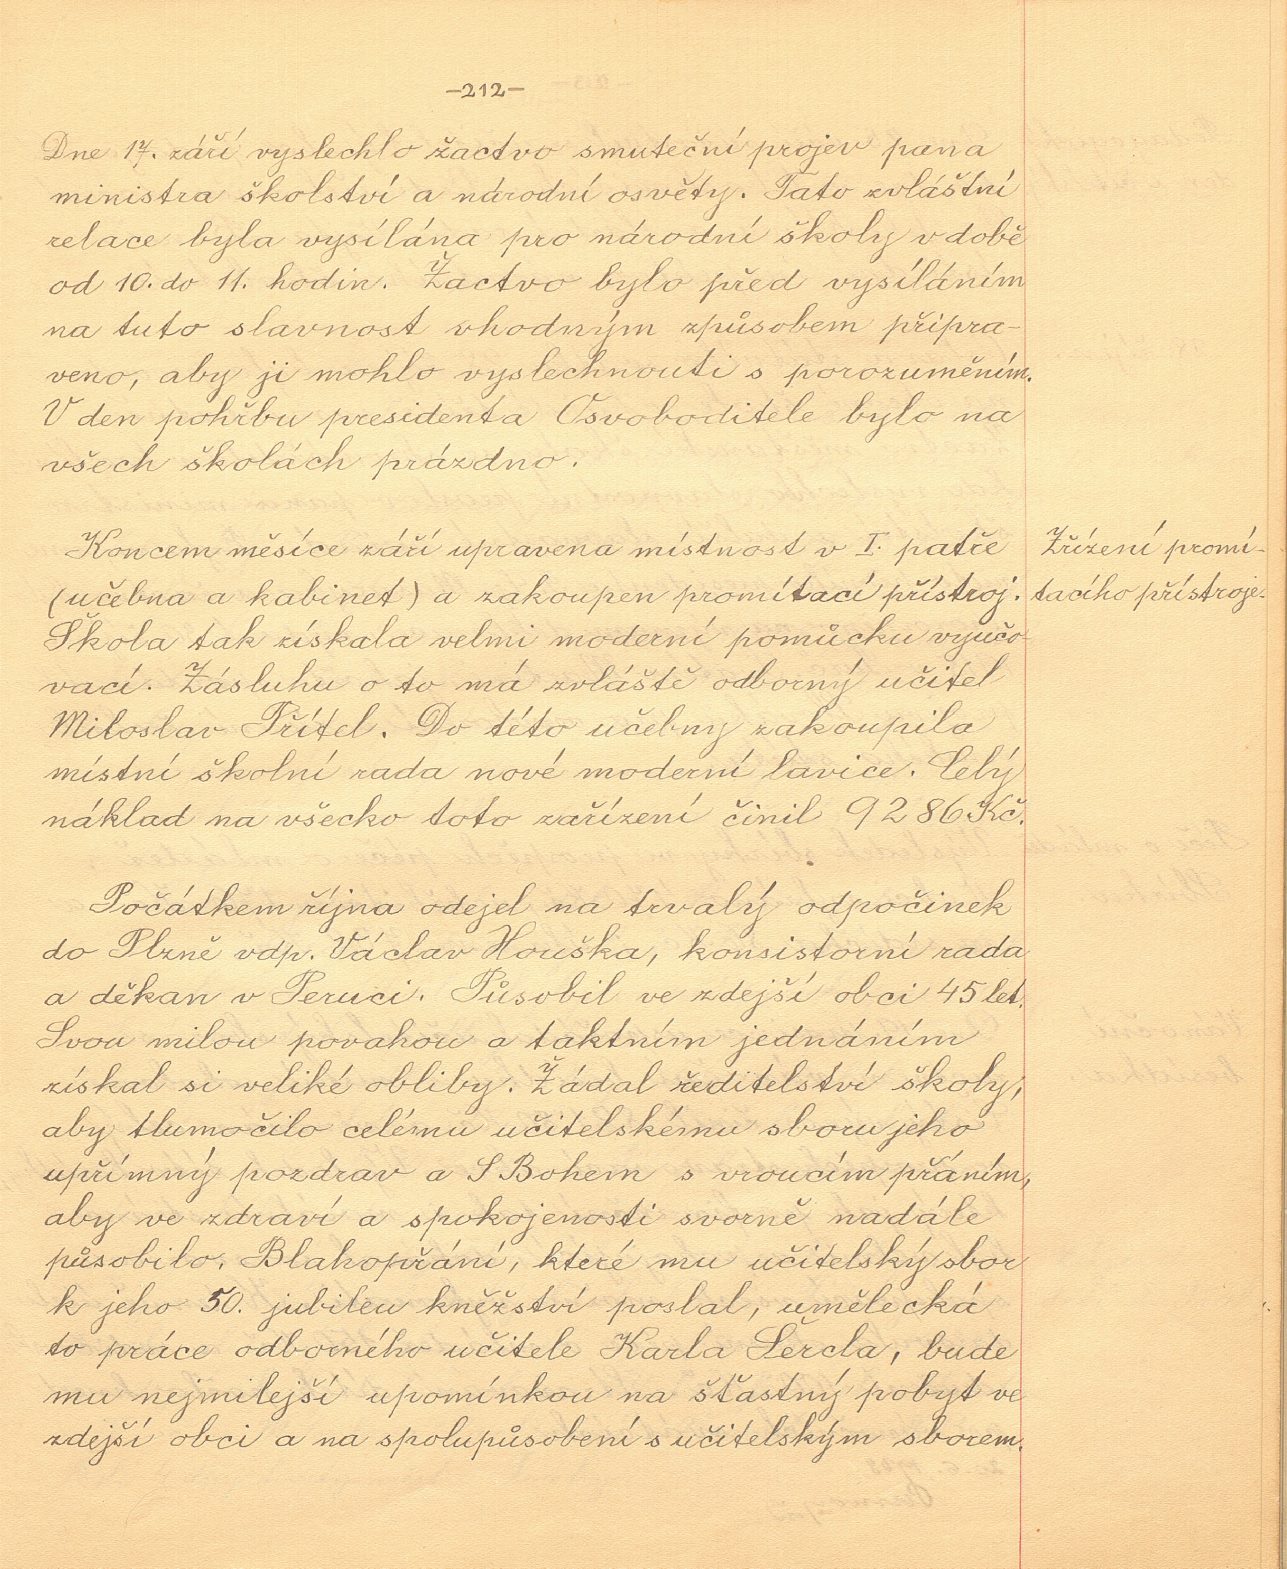 -212-
Dne 17. září vyslechlo žactvo smuteční projev pana
ministra školství a národní osvěty. Tato zvláštní
relace byla vysílána pro národní školy v době
od 10. do 11. hodin. Žactvo bylo před vysíláním
na tuto slavnost vhodným způsobem připra-
veno, aby ji mohlo vyslechnouti s porozuměním.
V den pohřbu presidenta Osvoboditele bylo na
všech školách prázdno.
Koncem měsíce září upravena místnost v I. patře
(učebna a kabinet) a zakoupen promítací přístroj.
Škola tak získala velmi moderní pomůcku vyučo-
vací. Zásluhu o to má zvláště odborný učitel
Miloslav Přítel. Do této učebny zakoupila
místní školní rada nové moderní lavice. Celý
náklad na všecko toto zařízení činil 9286 Kč.
Zřízení promí-
tacího přístroje.
Počátkem října odejel na trvalý odpočinek
do Plzně vdp. Václav Houška, konsistorní rada
a děkan v Peruci. Působil ve zdejší obci 45 let.
Svou milou povahou a taktním jednáním
získal si veliké obliby. Žádal ředitelství školy,
aby tlumočilo celému učitelskému sboru jeho
upřímný pozdrav a S Bohem s vroucím přáním,
aby ve zdraví a spokojenosti svorně nadále
působilo. Blahopřání, které mu učitelský sbor
k jeho 50. jubileu kněžství poslal, umělecká
to práce odborného učitele Karla Šercla, bude
mu nejmilejší upomínkou na šťastný pobyt ve
zdejší obci a na spolupůsobení s učitelským sborem.